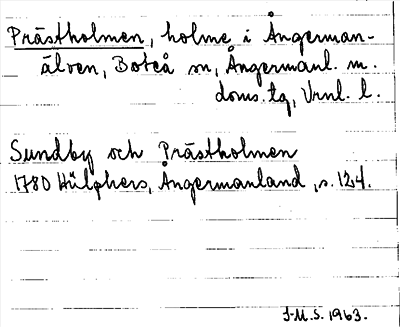 Prästholmen, holme i Ångerman-
älven, Boteå sn, Ångermanl. m.
doms.tg, Vrnl. l.
Sundby och Prästholmen
1780 Hülphers, Ångermanland, s. 124.
J-M.S. 1963.